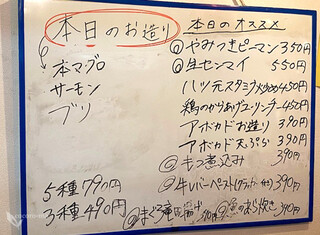 本日のお造り
本マグロ
サーモン
ブリ
5種 790円
3種 490円
本日のオススメ
◎やみつきピーマン 350円
◎生センマイ 550円
ハツ元スタミナ炒め 450円
鶏のからあげユーリンチー 450円
アボカドお造り 390円
アボカド天ぷら 390円
◎もつ煮込み 390円
◎牛レバーペースト 390円